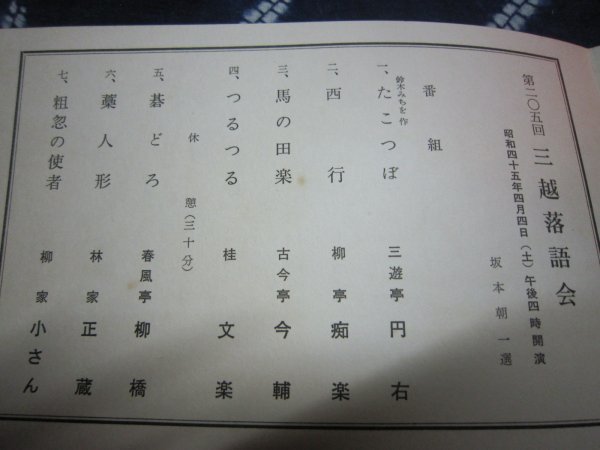 第二〇五回 三越落語会
昭和四十五年四月四日(土)午後四時開演
坂本朝一選
番組
鈴木みちを作
一、たこつぼ 三遊亭円右
二、西行 柳亭痴楽
三、馬の田楽 古今亭今輔
四、つるつる 桂文楽
休憩(三十分)
五、碁どろ 春風亭柳橋
六、藁人形 林家正蔵
七、粗忽の使者 柳家小さん